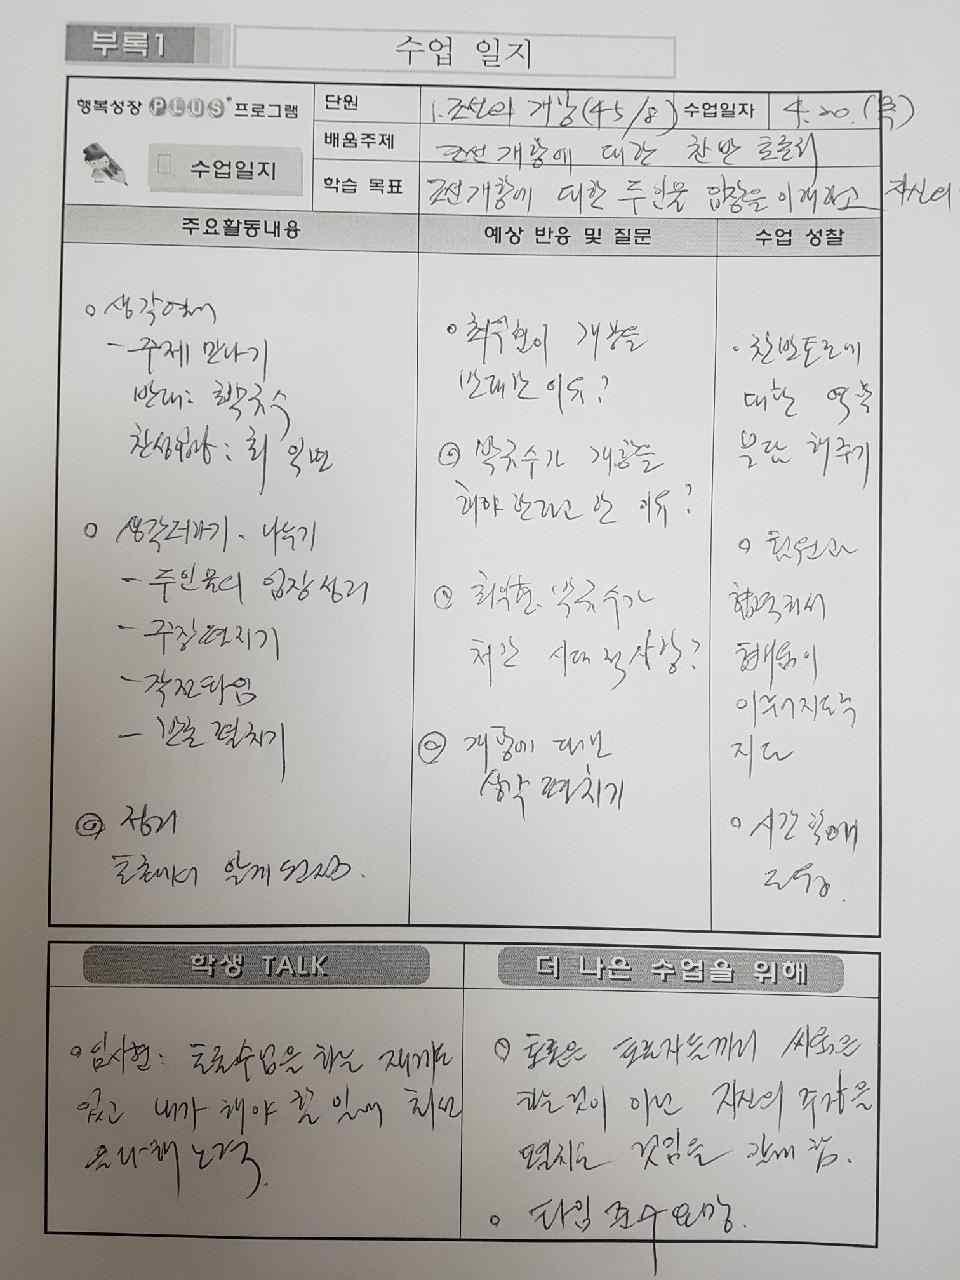 부록1
수업 일지
행복성장 PLUS 프로그램
수업일지
단원
1. 조선의 개항(4-5/8)
수업일자
4. 20. (목)
배움주제
조선 개항에 대한 찬반 토론하기
학습 목표
조선개항에 대한 두 인물 입장을 이해하고 자신의
주요활동내용
예상 반응 및 질문
수업 성찰
○ 생각열기
- 주제 만나기
반대: 박규수
찬성: 최익현
○ 생각더하기·나누기
- 두인물의 입장정리
- 주장펼치기
- 작전타임
- 반론 펼치기
◎ 정리
토론에서 알게 된점.
○ 최익현이 개항을
반대한 이유?
◎ 박규수가 개항을
해야 한다고 한 이유?
○ 최익현, 박규수가
처한 시대적상황?
◎ 개항에 대한
생각 펼치기
· 찬반토론에
대한
해주기
○ 팀원과
협력해서
이루어지도록
지도
○ 시간
학생 TALK
○ 임사현: 토론수업을 하는 재미도
있고 내가 해야 할 일에 최선
을 다해
더 나은 수업을 위해
○ 토론은 토론자들끼리 싸움을
하는것이 아닌 자신의 주장을
펼치는 것임을
○ 타임 준수 요망.